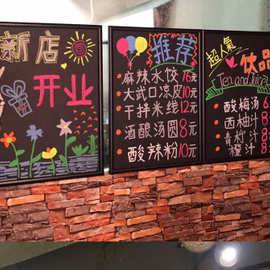 新店
开业
推荐
麻辣水饺
大武口凉皮10元
干拌米线12元
酒酿汤圆8元
酸辣粉10元
超人氣
饮品
Tea and juice
酸梅汤
西柚汁8
青柠汁8
橙汁8